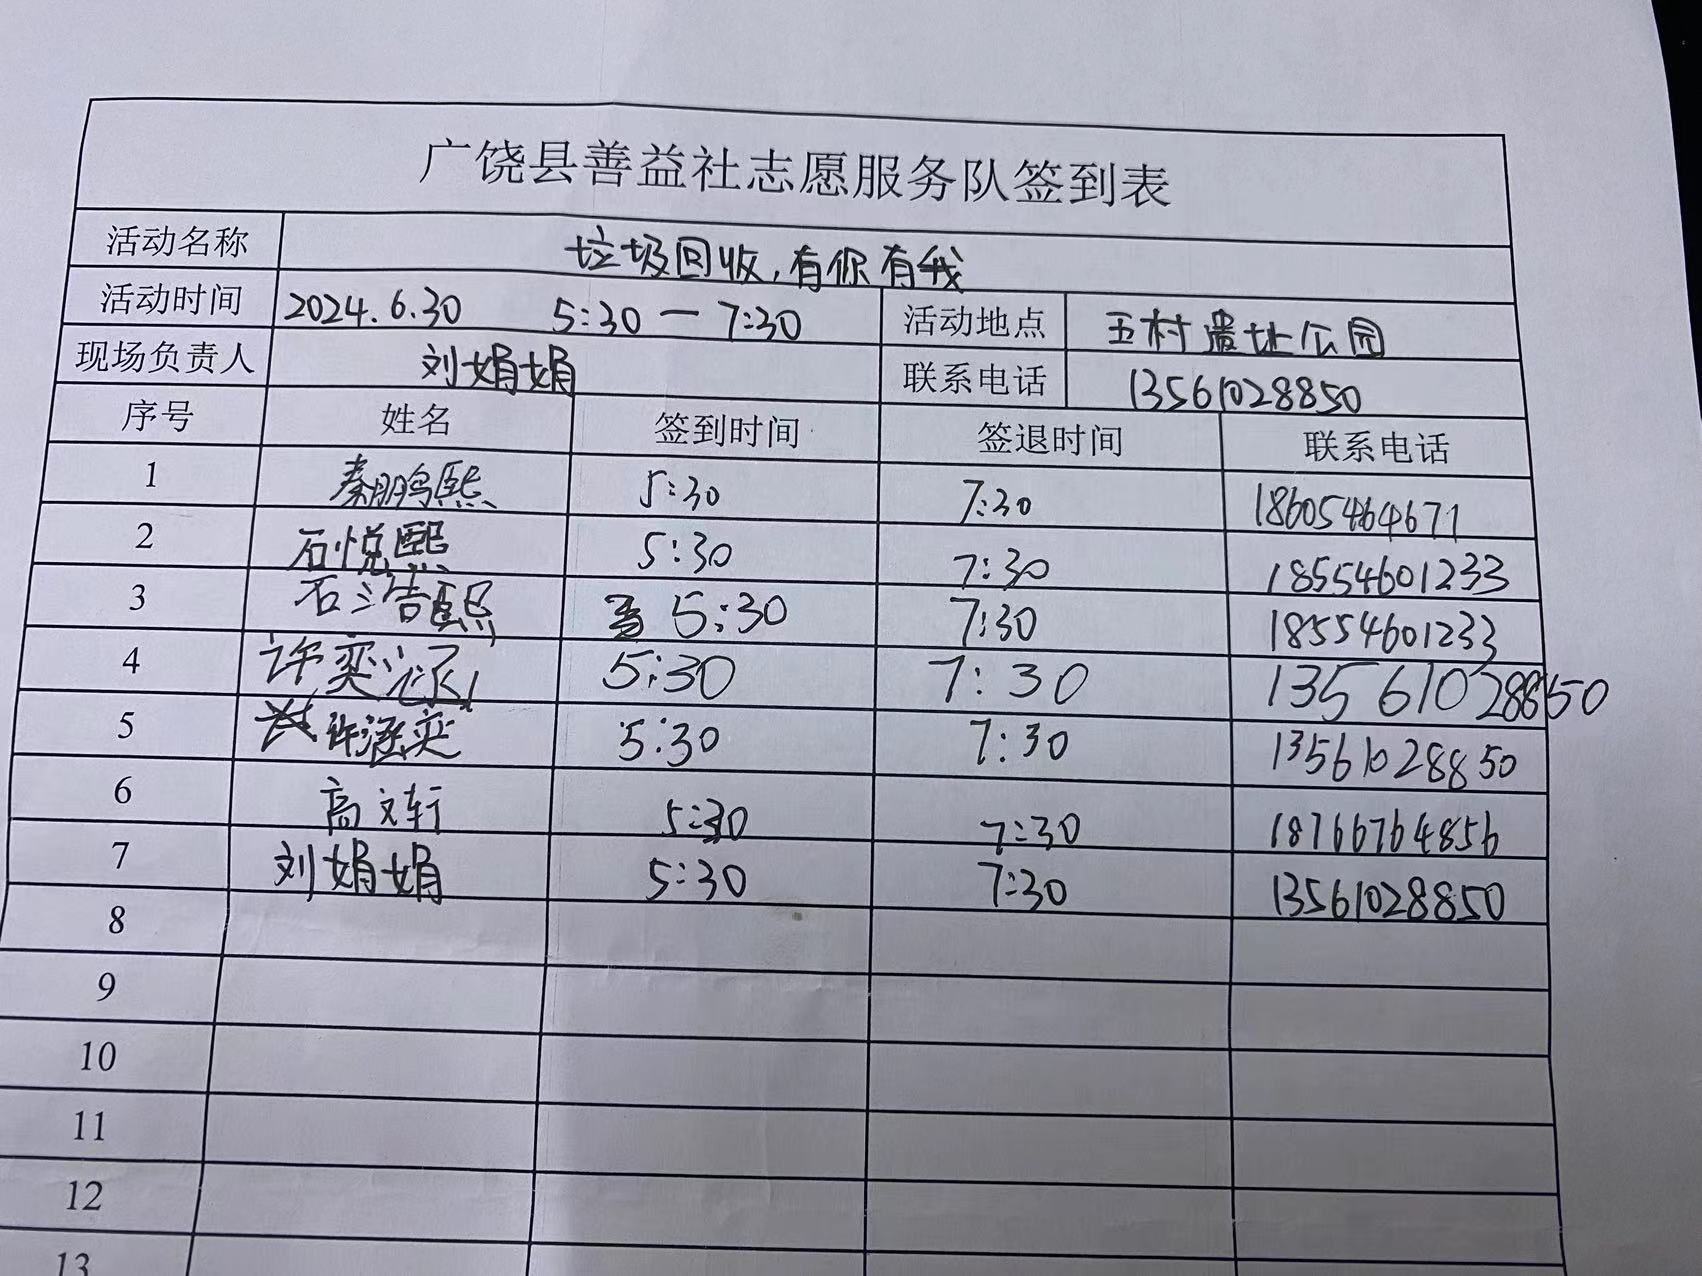 广饶县善益社志愿服务队签到表
活动名称 垃圾回收,有你有我
活动时间 2024.6.30 5:30—7:30 活动地点 五村遗址公园
现场负责人 刘娟娟 联系电话 13561028850
序号 姓名 签到时间 签退时间 联系电话
1 秦鹏熙 5:30 7:30 18605464671
2 石悦熙 5:30 7:30 18554601233
3 石浩熙 5:30 7:30 18554601233
4 许奕 5:30 7:30 13561028850
5 许涵奕 5:30 7:30 13561028850
6 高文轩 5:30 7:30 18766764856
7 刘娟娟 5:30 7:30 13561028850
8
9
10
11
12
13